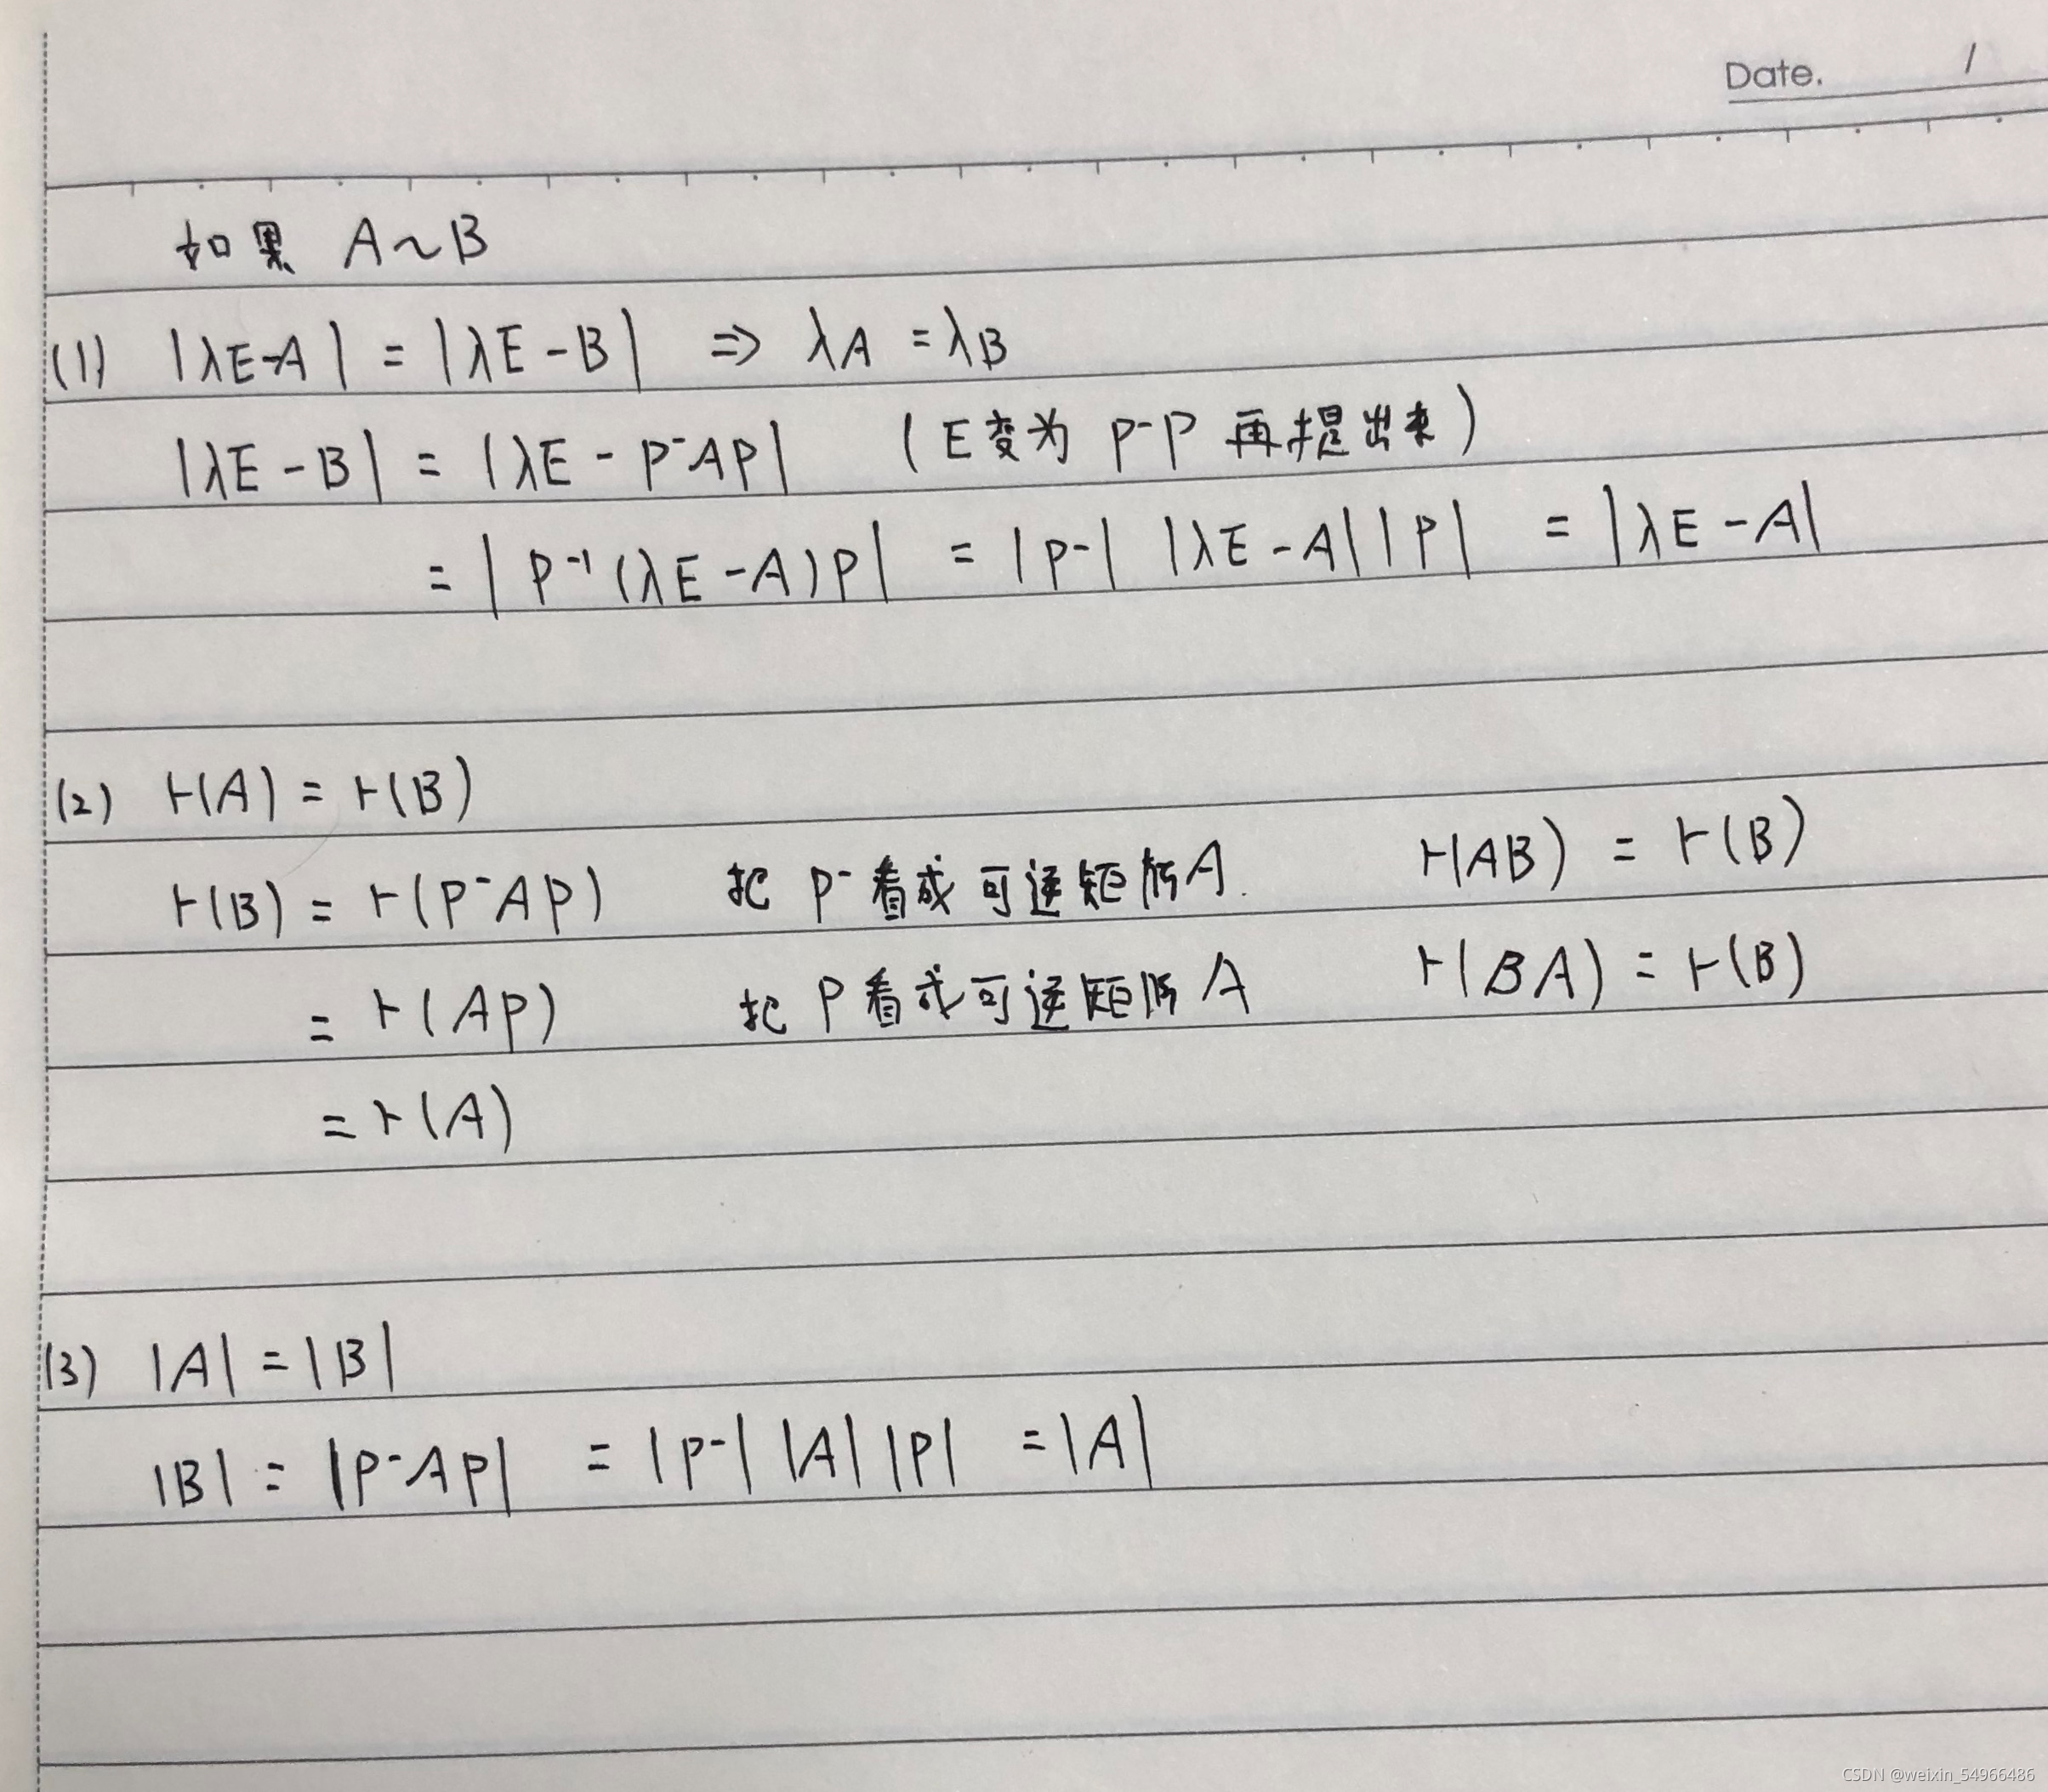 Date. /
如果 A~B
(1) |λE-A| = |λE-B| ⇒ λA = λB
|λE-B| = |λE-P⁻AP| (E变为 P⁻P 再提出来)
= |P⁻¹(λE-A)P| = |P⁻| |λE-A| |P| = |λE-A|
(2) r(A) = r(B)
r(B) = r(P⁻AP) 把 P⁻ 看成可逆矩阵A. r(AB) = r(B)
= r(AP) 把 P 看成可逆矩阵 A r(BA) = r(B)
= r(A)
(3) |A| = |B|
|B| = |P⁻AP| = |P⁻| |A| |P| = |A|
CSDN @weixin_54966486